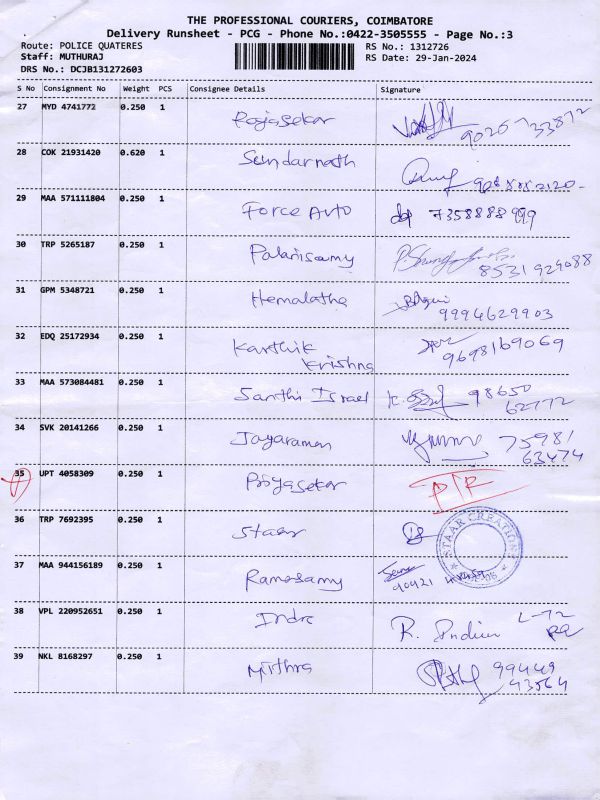 THE PROFESSIONAL COURIERS, COIMBATORE
Delivery Runsheet - PCG - Phone No.:0422-3505555 - Page No.:3
Route: POLICE QUATERES RS No.: 1312726
Staff: MUTHURAJ RS Date: 29-Jan-2024
DRS No.: DCJB131272603
S No Consignment No Weight PCS Consignee Details Signature
27 MYD 4741772 0.250 1 Rajasekar
28 COK 21931420 0.620 1 Sundarnath
29 MAA 571111804 0.250 1 Force Auto 7358888999
30 TRP 5265187 0.250 1 Palanisamy 8531929088
31 GPM 5348721 0.250 1 Hemalatha 9994629903
32 EDQ 25172934 0.250 1 Karthik
Krishna 9698169069
33 MAA 573084481 0.250 1 Santhi Israel 98650
62772
34 SVK 20141266 0.250 1 Jayaraman 75981
63474
35 UPT 4058309 0.250 1 Priyasekar
36 TRP 7692395 0.250 1 Staar
STAAR CREATIONS
37 MAA 944156189 0.250 1 Ramasamy
38 VPL 220952651 0.250 1 Indra R.
39 NKL 8168297 0.250 1 Mithra 99449
43564